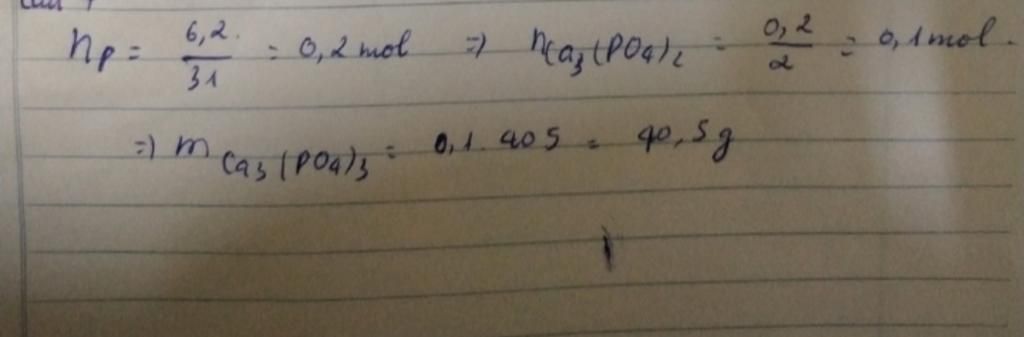 n_P = 6,2 / 31 = 0,2 mol => n_Ca₃(PO₄)₂ = 0,2 / 2 = 0,1 mol.
=> m_Ca₃(PO₄)₃ = 0,1 . 405 = 40,5 g